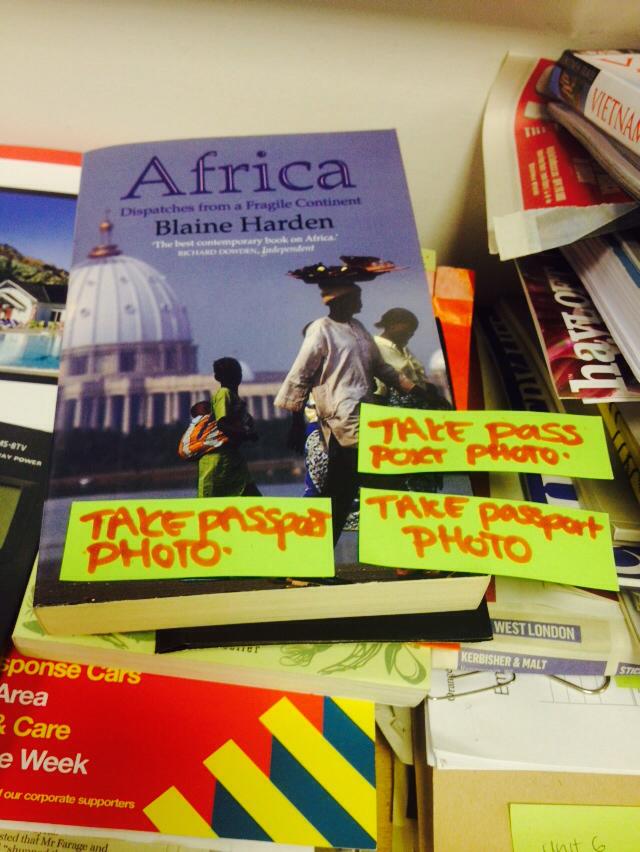 VIETNAM
Africa
Dispatches from a Fragile Continent
Blaine Harden
'The best contemporary book on Africa.'
RICHARD DOWDEN, Independent
TAKE PASS
PORT PHOTO.
TAKE PASSPORT
PHOTO.
TAKE passport
PHOTO
MS-8TV
AY POWER
WEST LONDON
KERBISHER & MALT
sponse Cars
Area
& Care
e Week
our corporate supporters
sted that Mr Farage and
Unit 6